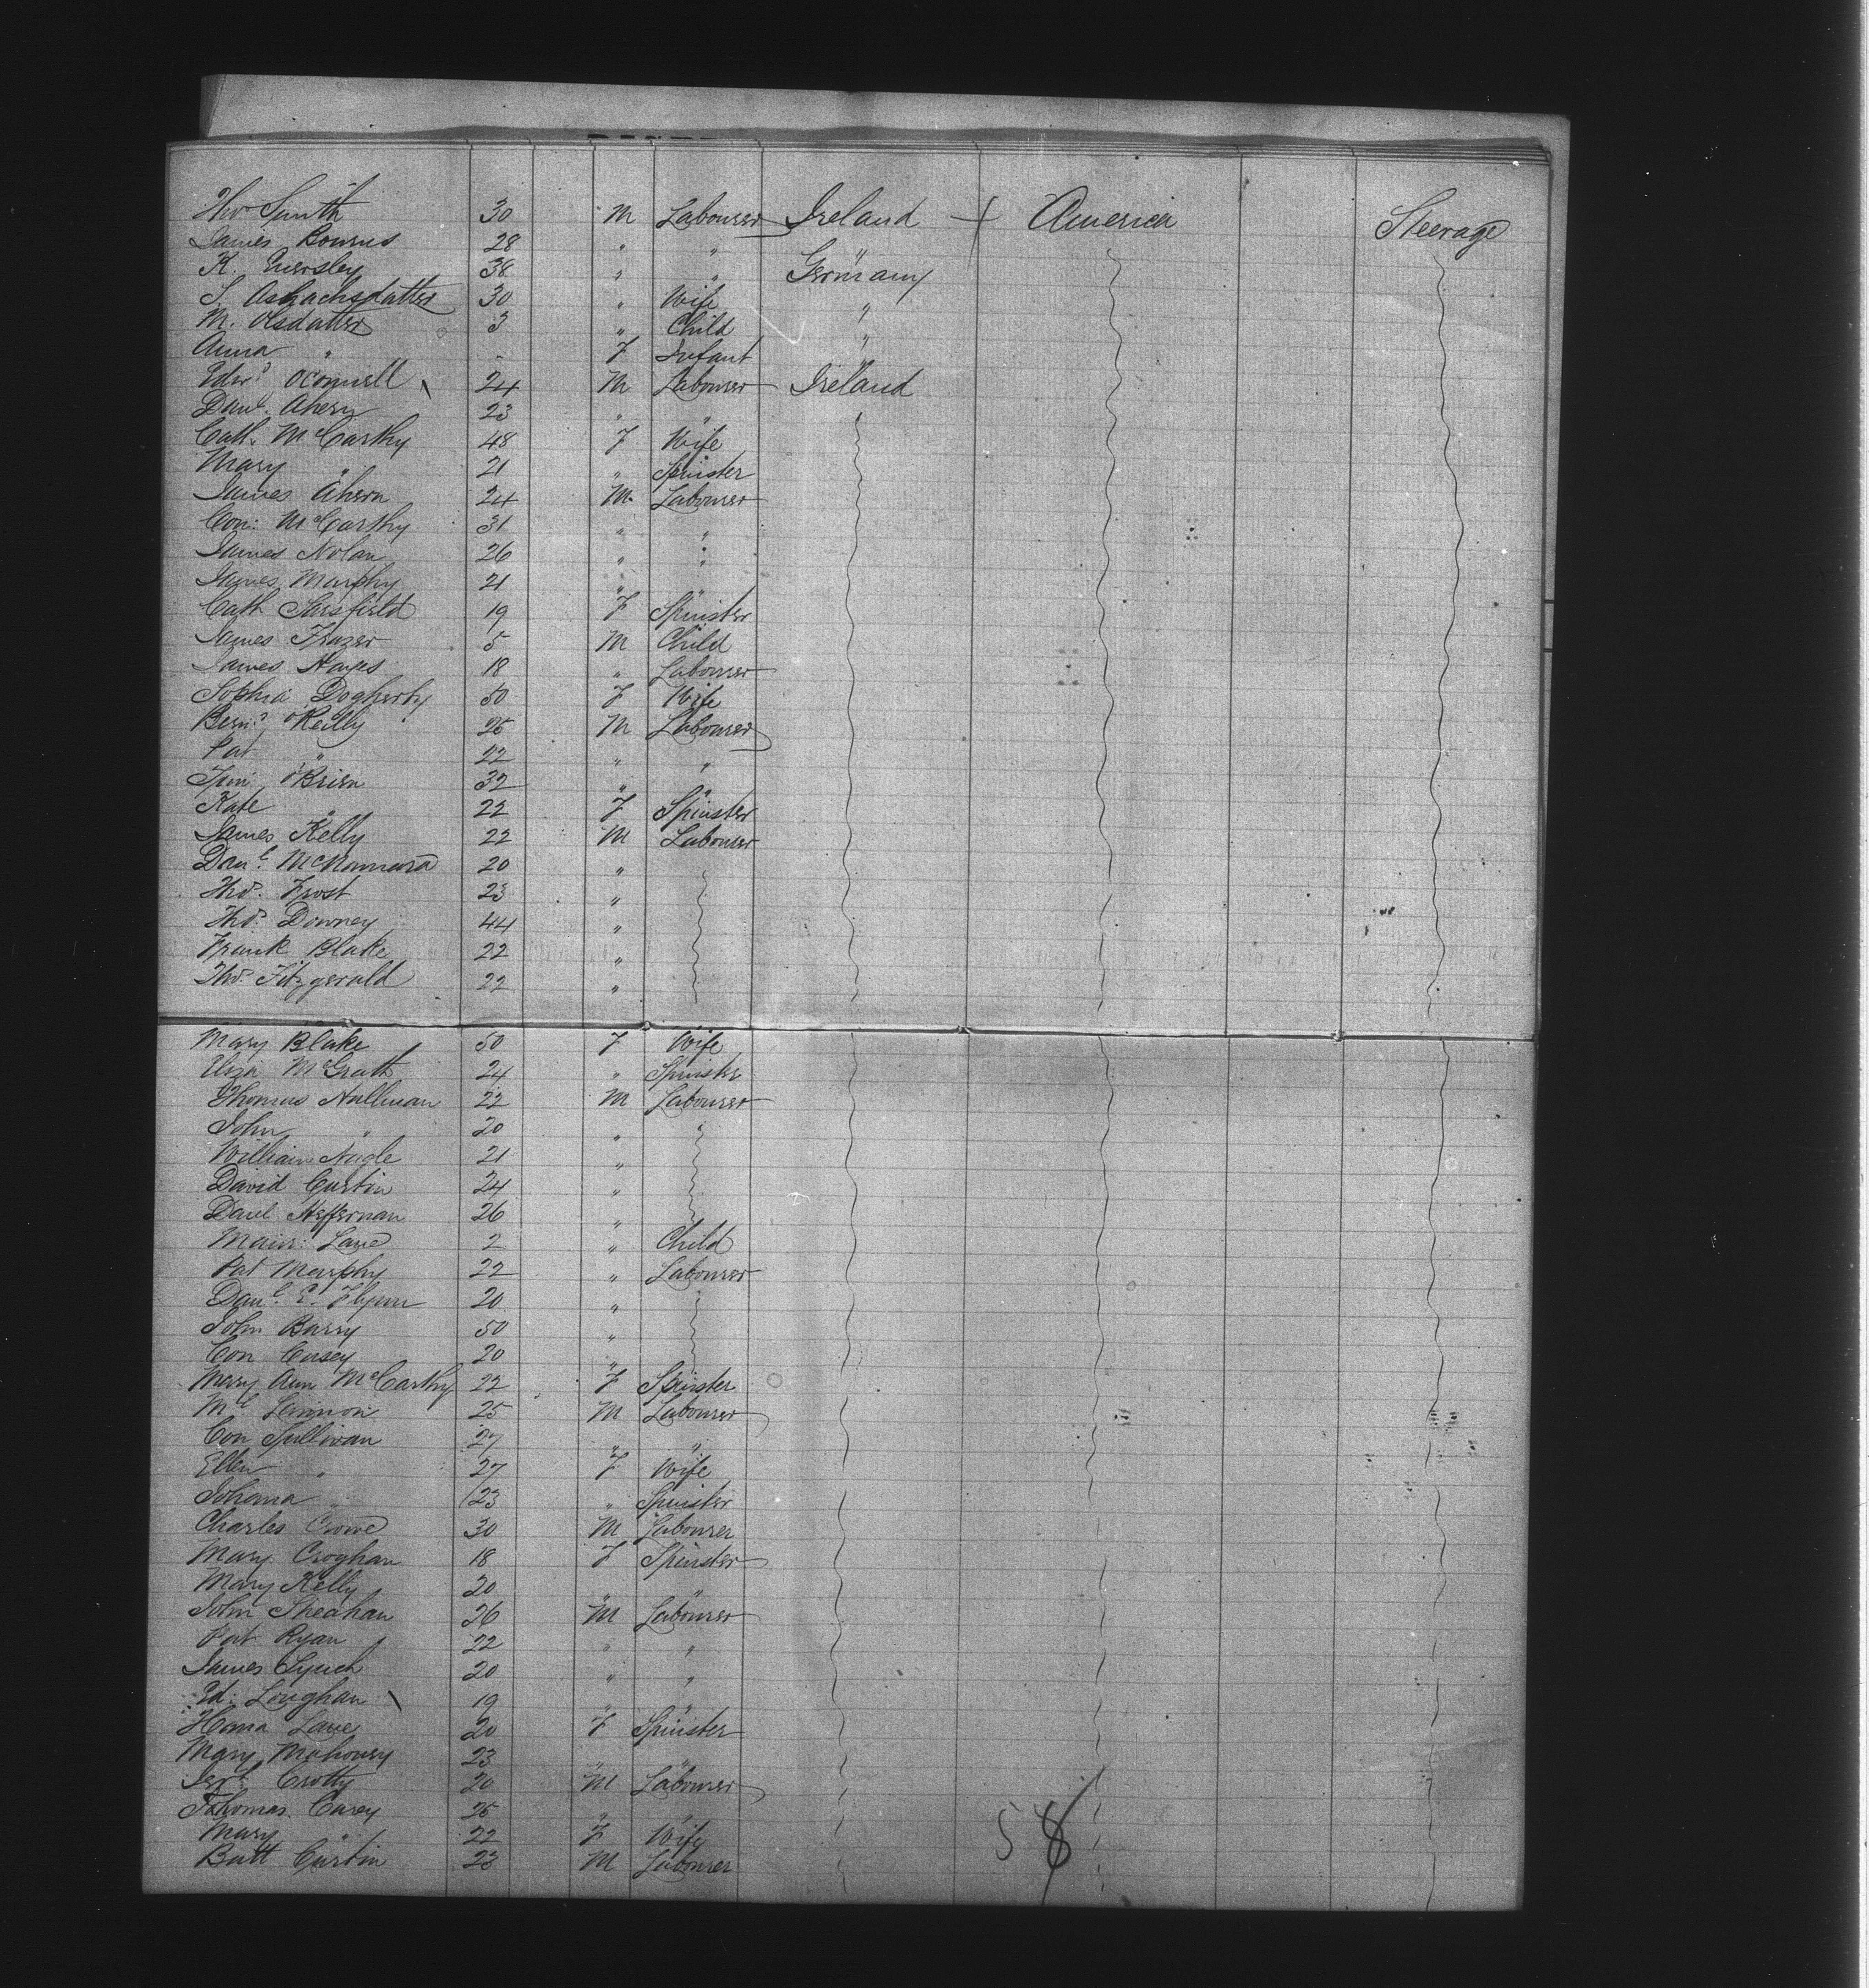 Thos Smith 30 M Labourer Ireland America Steerage
James Bownes 28 " " "
K. Guersley 38 " " Germany
S. Aslachsdatter 30 " Wife "
M. Olsdatter 3 " Child "
Anna " - F Infant "
Edwd O'Connell 24 M Labourer Ireland
Danl. Ahern 23 " "
Cath. McCarthy 48 F Wife
Mary " 21 " Spinster
James Ahern 24 M Labourer
Con: McCarthy 31 " "
James Nolan 26 " "
James Murphy 21 " "
Cath Sarsfield 19 F Spinster
James Frazer 5 M Child
James Hayes 18 " Labourer
Sophia Dogherty 50 F Wife
Bernd O'Reilly 25 M Labourer
Pat " 22 " "
Tim: O'Brien 32 " "
Kate " 22 F Spinster
James Kelly 22 M Labourer
Danl. McNamara 20 "
Thos. Frost 23 "
Thos. Downey 44 "
Frank Blake 22 "
Thos. Fitzgerald 22 "
Mary Blake 50 F Wife
Eliza McGrath 24 " Spinster
Thomas Hallinan 22 M Labourer
John " 20 "
William Nagle 21 "
David Curtin 24 "
Danl Heffernan 26 "
Maur: Lane 2 " Child
Pat Murphy 22 " Labourer
Danl. E. Flynn 20 "
John Barry 50 "
Con Casey 20 "
Mary Ann McCarthy 22 F Spinster
Ml Lennon 25 M Labourer
Con Sullivan 27 " "
Ellen " 27 F Wife
Johanna " 23 " Spinster
Charles Crowe 30 M Labourer
Mary Croghan 18 F Spinster
Mary Kelly 20 " "
John Sheahan 26 M Labourer
Pat Ryan 22 " "
James Lynch 20 " "
Ed: Loughan 19 " "
Hanna Lane 20 F Spinster
Mary Mahoney 23 " "
Jerh Crotty 20 M Labourer
Thomas Carey 25 "
Mary " 22 F Wife
Batt Curtin 23 M Labourer
58